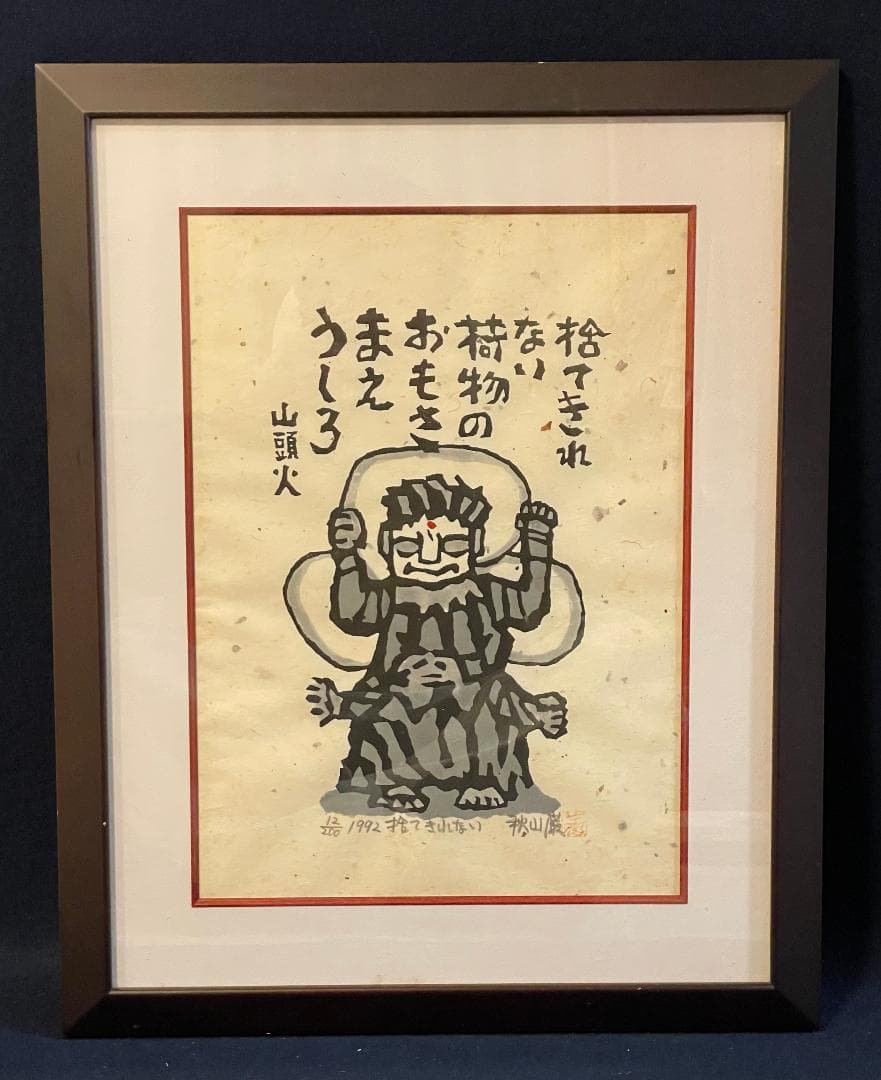 捨てきれ
ない
荷物の
おもさ
まえ
うしろ
山頭火
12/200 1992 捨てきれない 秋山巌